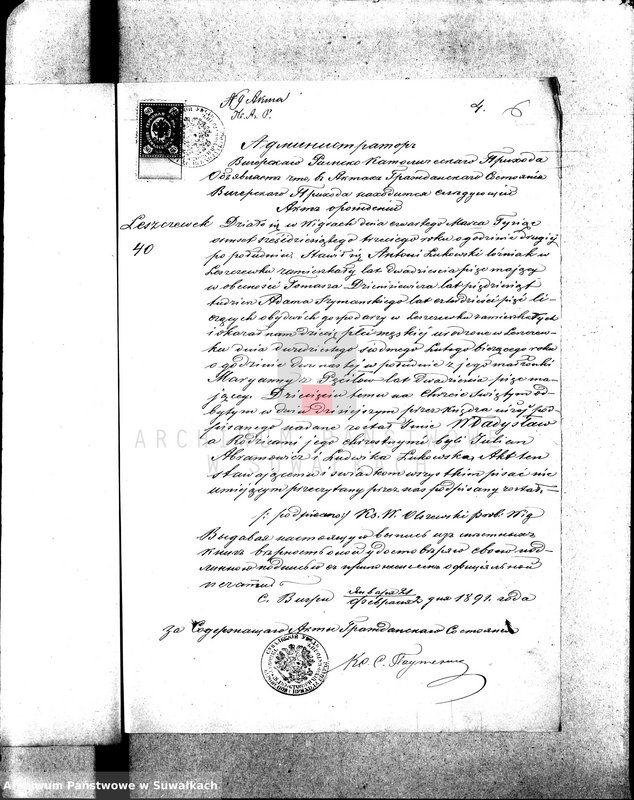 Къ Акта
4. 6
Администраторъ
Вигерскаго Римско Католическаго Прихода
Объявляетъ что, въ Актахъ Гражданскаго Состоянія
Вигерскаго Прихода находится слѣдующій
Актъ
Leszczewek
40
Działo się w Wigrach dnia czwartego Marca Tysiąc
osmset sześćdziesiątego trzeciego roku o godzinie drugiej
po południu. Stawił się Antoni Łukowski leśniak w
Leszczewku zamieszkały lat dwadzieścia pięć mający
w obecności Tomasza Dzienisiewicza lat pięćdziesiąt
tudzież Adama Szymańskiego lat czterdzieści pięć li-
czących obydwóch gospodarzy w Leszczewku zamieszkałych
i okazał nam dziecię płci męzkiej urodzone w Leszczew-
ku dnia dwudziestego siódmego Lutego bieżącego roku
o godzinie dwunastej w południe z jego małżonki
Maryanny z lat dwadzieścia pięć ma-
jącej. Dziecięciu temu na Chrzcie Świętym od-
bytym w dniu dzisiejszym przez księdza niżej pod-
pisanego nadane zostało Imie Władysław
a Rodzicami jego chrzestnymi byli Julian
Abramowicz i Ludwika Łukowska, Akt ten
stawającemu i świadkom wszystkim pisać nie
umiejącym przeczytany przez nas podpisany został. —
/: podpisano:/ Ks. W. Olszewski prob. Wig
Выдавая настоящую выпись изъ метельныхъ
книгъ вѣрность оной удостовѣряю своею под-
линною подписью съ приложеніемъ оффиціальной
печати
С. Вигры Января 21
Февраля 2 дня 1891. года
За Содержащаго Акты Гражданскаго Состоянія
Кс. С.
ARCHIWUM PAŃSTWOWE
W SUWAŁKACH
Archiwum Państwowe w Suwałkach